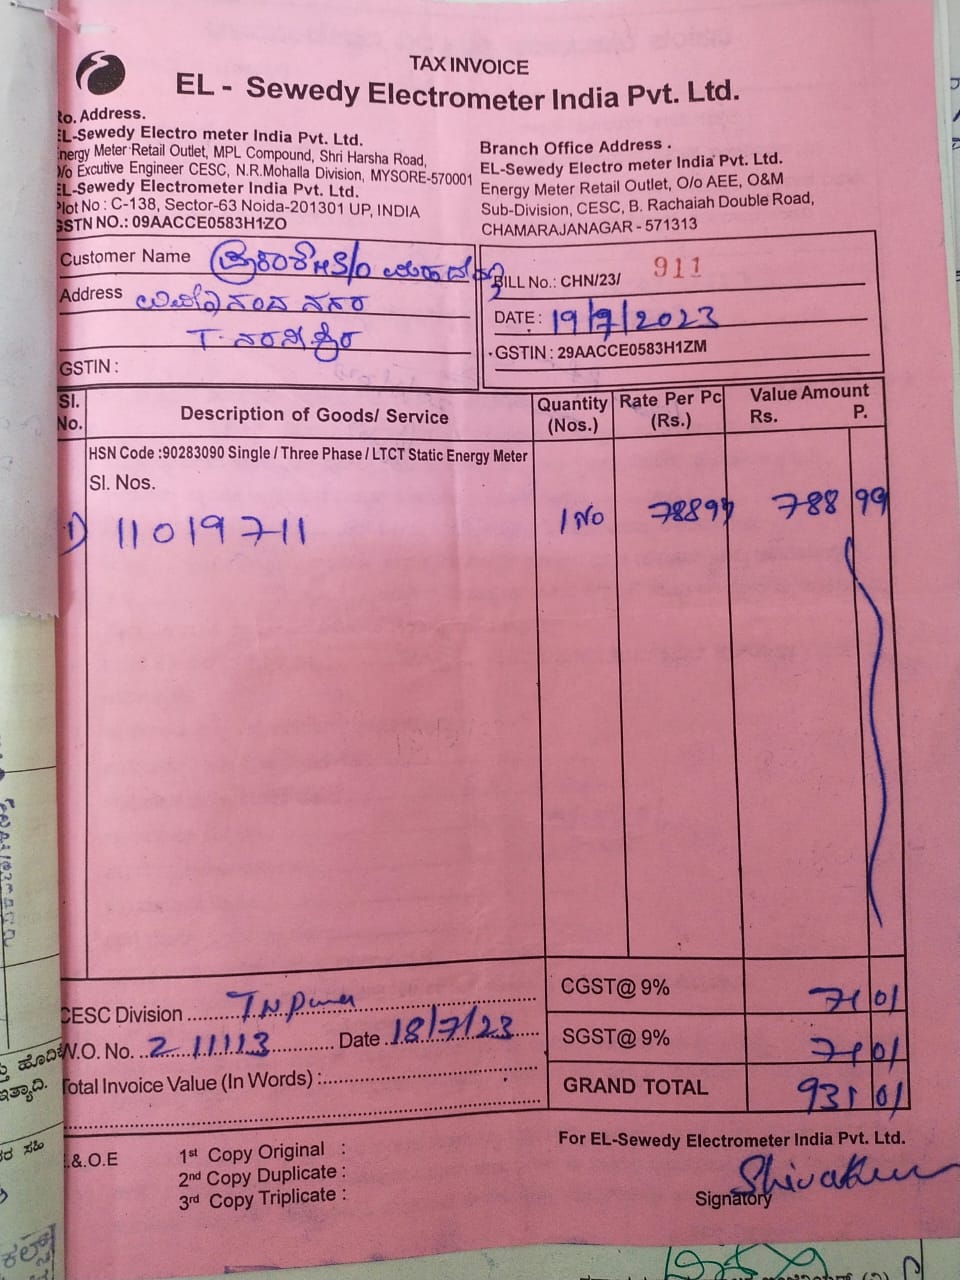 TAX INVOICE
EL - Sewedy Electrometer India Pvt. Ltd.
Ro. Address.
EL-Sewedy Electro meter India Pvt. Ltd.
Energy Meter Retail Outlet, MPL Compound, Shri Harsha Road,
O/o Excutive Engineer CESC, N.R.Mohalla Division, MYSORE-570001
EL-Sewedy Electrometer India Pvt. Ltd.
Plot No : C-138, Sector-63 Noida-201301 UP, INDIA
GSTN NO.: 09AACCE0583H1ZO
Branch Office Address .
EL-Sewedy Electro meter India Pvt. Ltd.
Energy Meter Retail Outlet, O/o AEE, O&M
Sub-Division, CESC, B. Rachaiah Double Road,
CHAMARAJANAGAR - 571313
Customer Name S/o
Address ನಗರ
T.
GSTIN :
BILL No.: CHN/23/ 911
DATE : 19/7/2023
GSTIN : 29AACCE0583H1ZM
Sl. No. Description of Goods/ Service Quantity (Nos.) Rate Per Pc (Rs.) Value Amount Rs. P.
HSN Code :90283090 Single / Three Phase / LTCT Static Energy Meter
Sl. Nos.
1) 11019711 1 No 78899 788 99
CGST@ 9% 71 01
SGST@ 9% 71 01
GRAND TOTAL 931 01
CESC Division
W.O. No. 211113 Date 18/7/23
Total Invoice Value (In Words) :
E.&.O.E
1st Copy Original :
2nd Copy Duplicate :
3rd Copy Triplicate :
For EL-Sewedy Electrometer India Pvt. Ltd.
Signatory